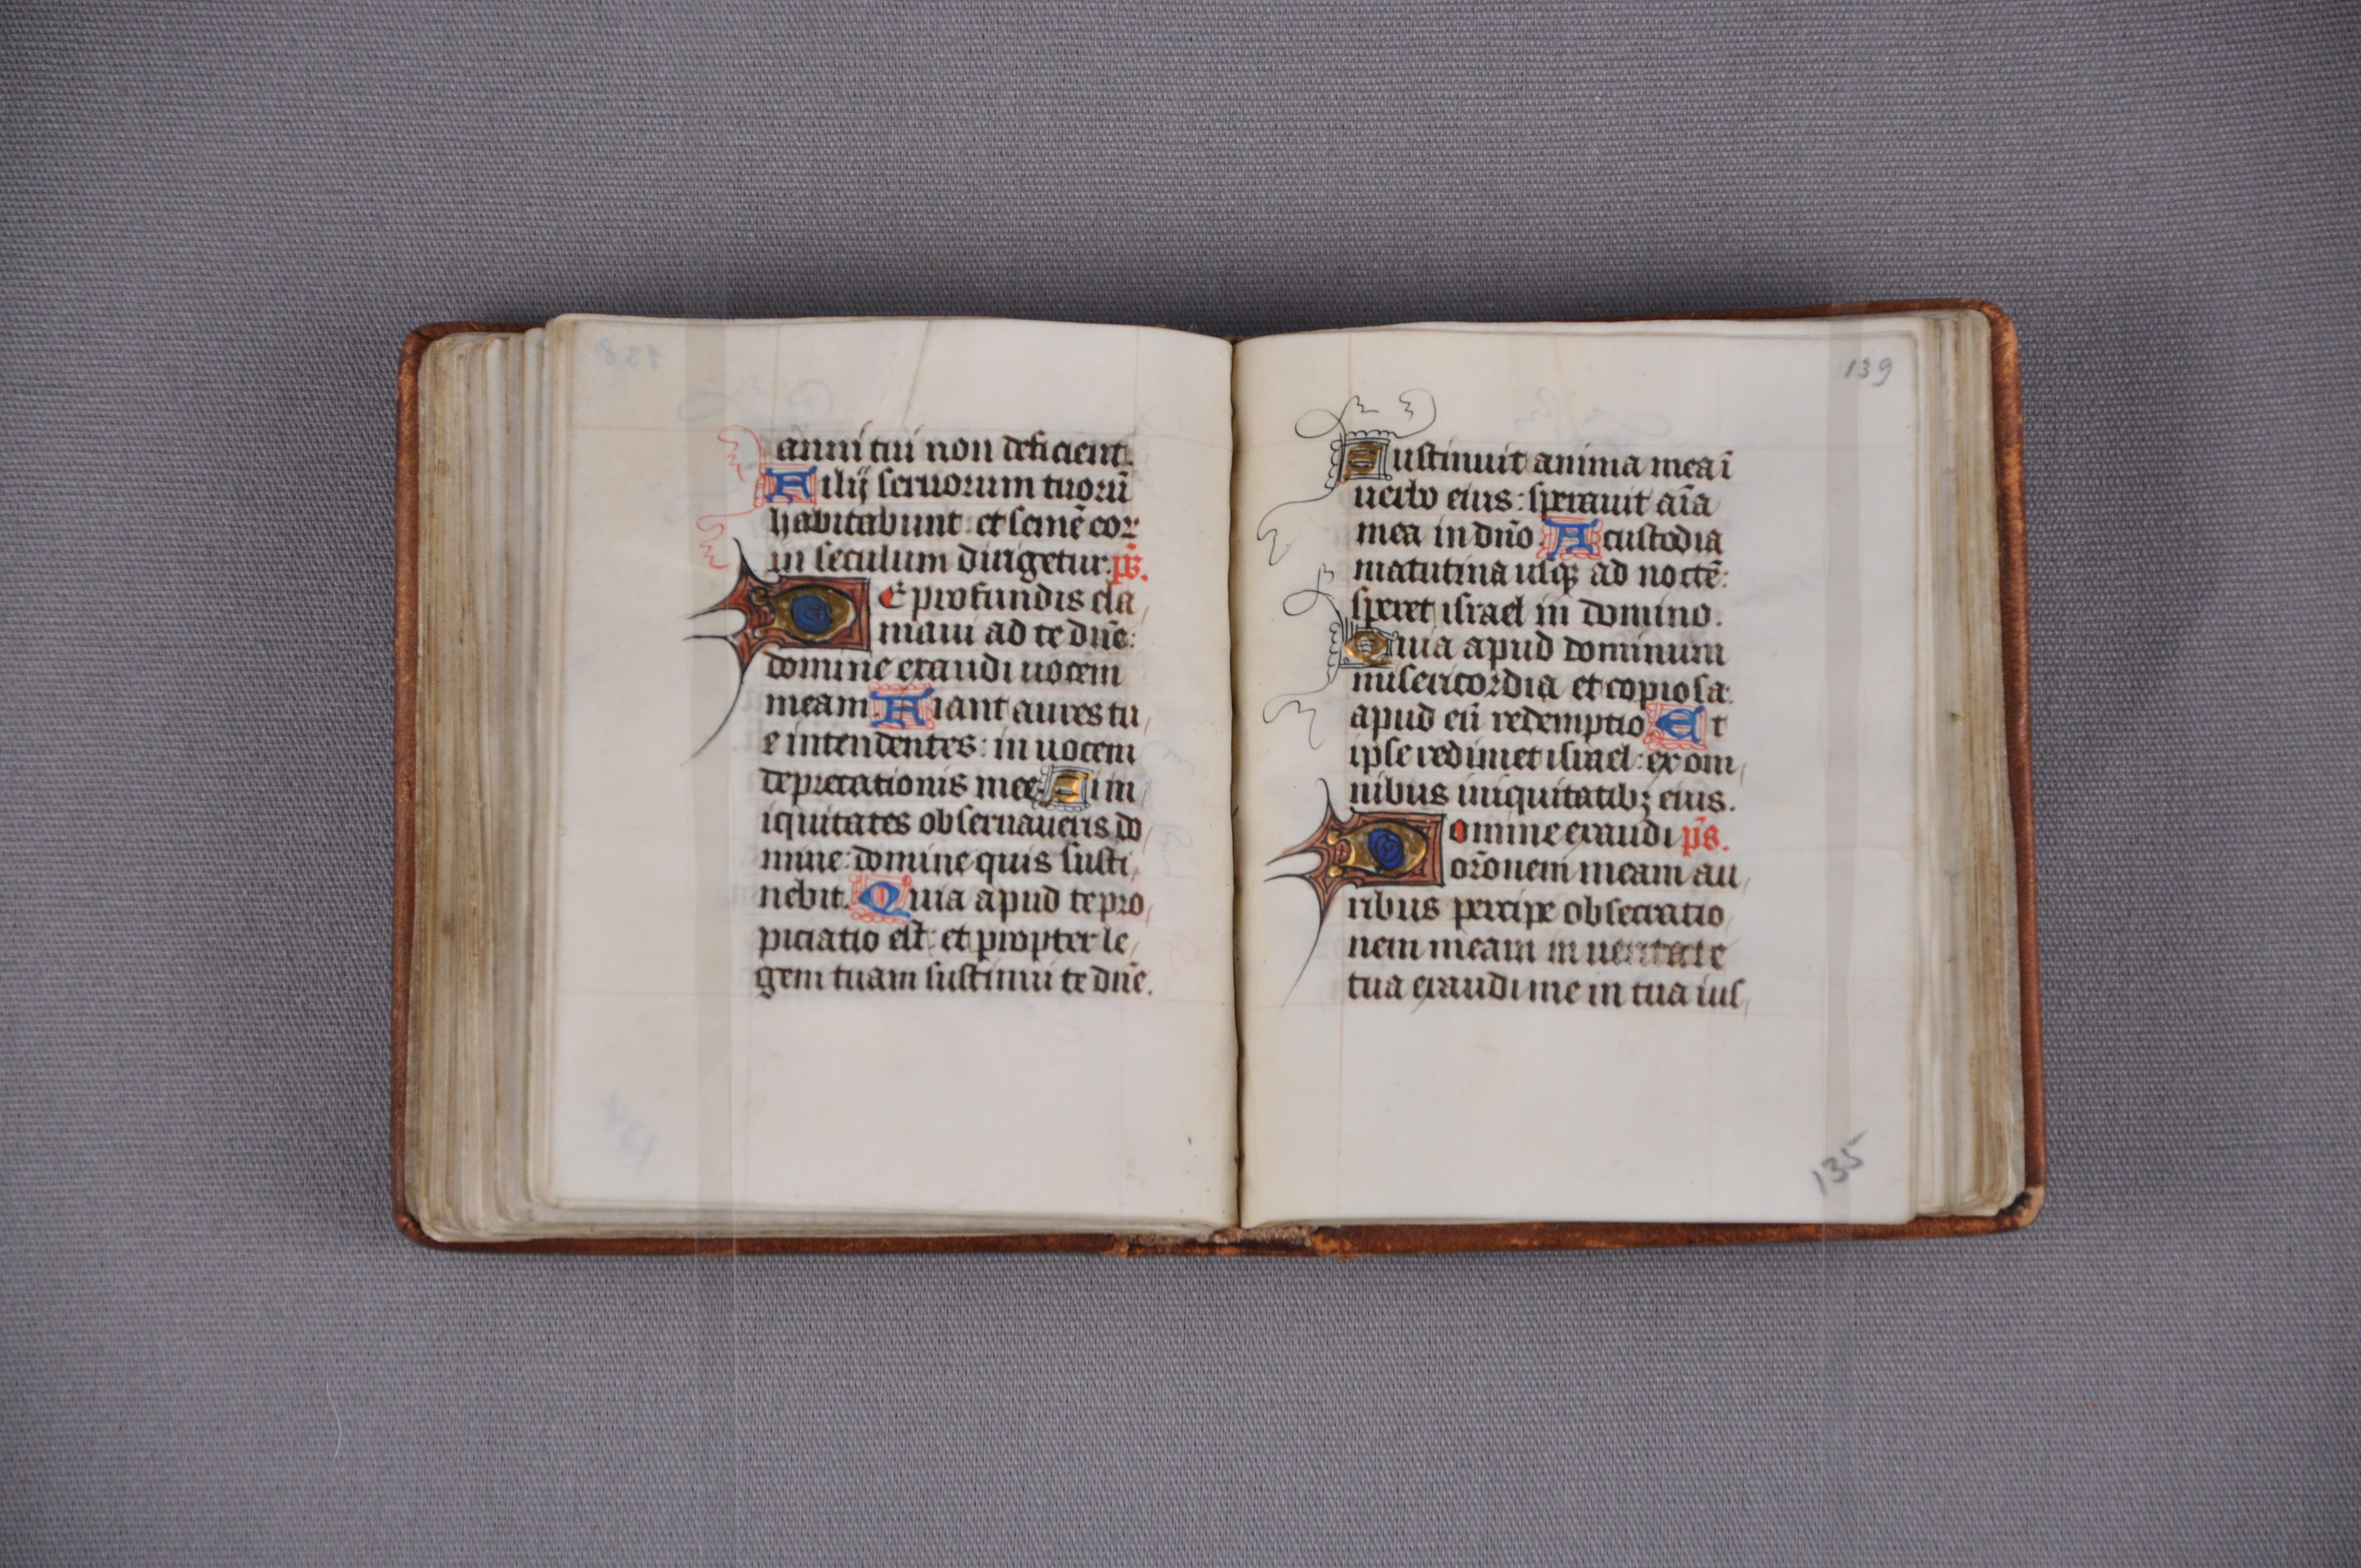 anni tui non deficient.
Filij seruorum tuorũ
habitabunt: et semẽ eoꝝ
in seculum dirigetur. p̃s.
De profundis cla
maui ad te dñe:
domine exaudi uocem
meam. Fiant aures tu
e intendentes: in uocem
deprecationis mee. Si in
iquitates obseruaueris do
mine: domine quis susti
nebit. Quia apud te pro
piciatio est: et propter le
gem tuam sustinui te dñe.
139
Sustinuit anima mea ĩ
uerbo eius: sperauit aĩa
mea in dño. A custodia
matutina usqꝫ ad noctẽ:
speret israel in domino.
Quia apud dominum
misericordia et copiosa
apud eũ redemptio. Et
ipse redimet israel: ex om
nibus iniquitatibꝫ eius.
Domine exaudi p̃s.
orõnem meam au
ribus percipe obsecratio
nem meam in ueritate
tua exaudi me in tua ius
135